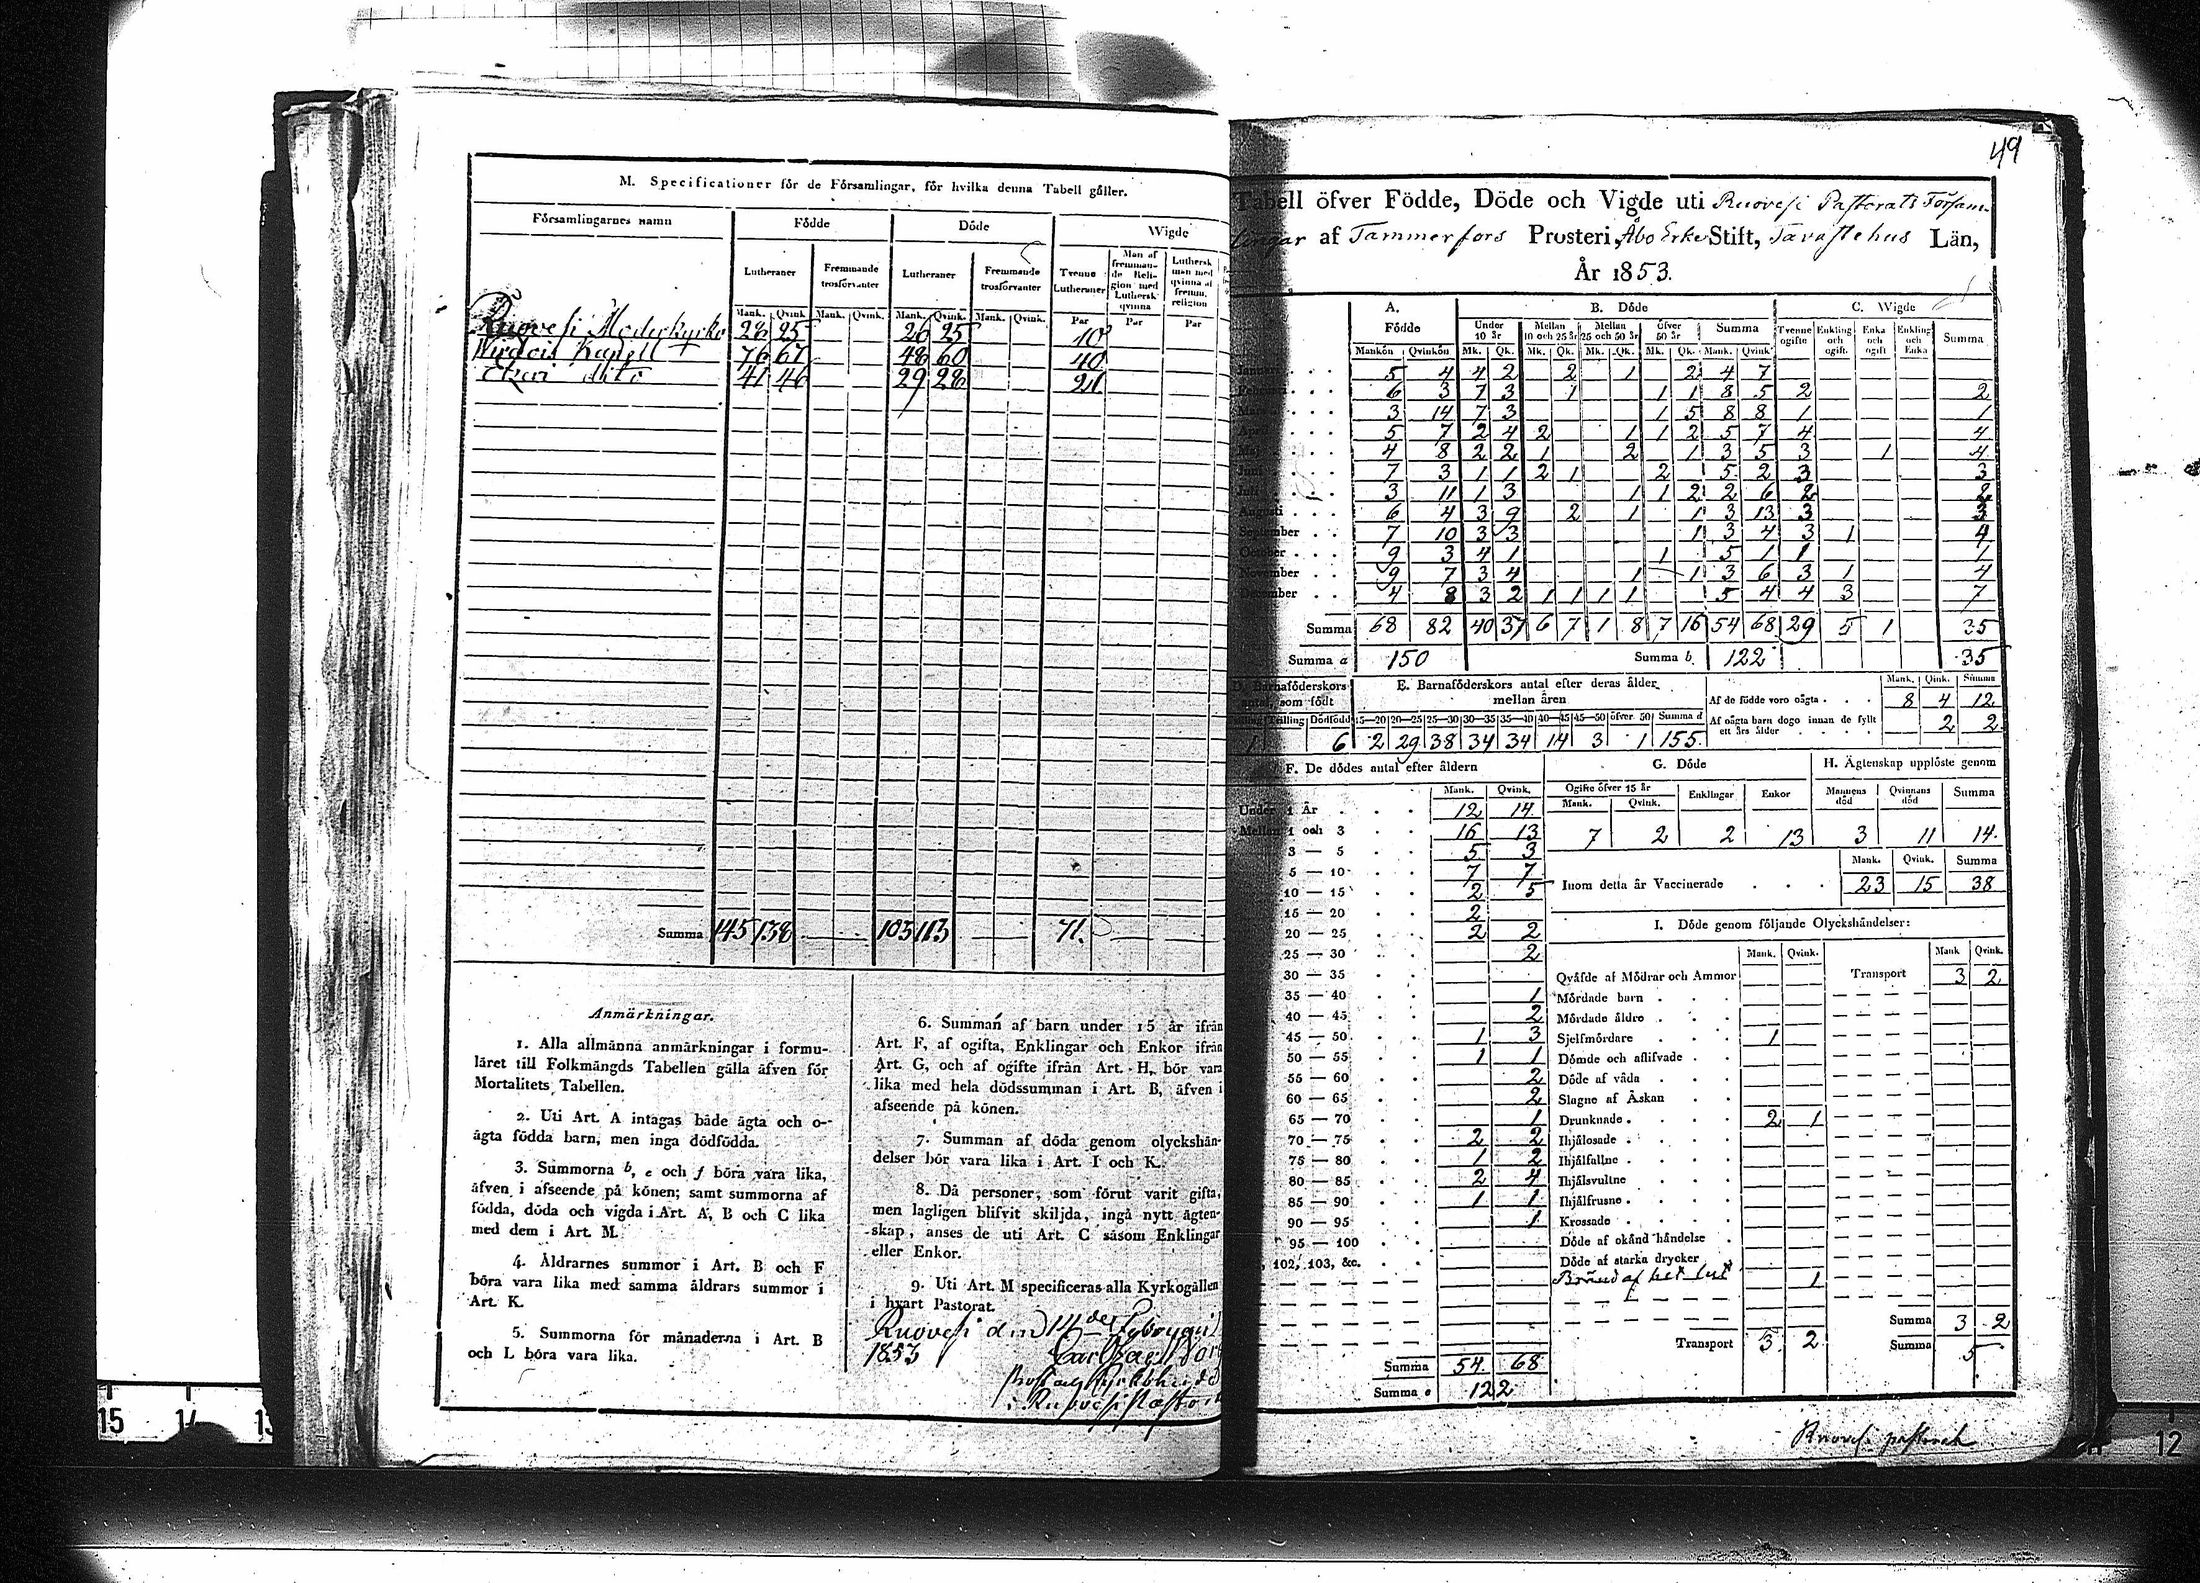 M. Specificationer för de Församlingar, för hvilka denna Tabell gäller.
Församlingarnes namn Födde Döde Wigde
Lutheraner Fremmande trosförvanter Lutheraner Fremmande trosförvanter Tvenne Lutheraner Man af fremmande Religion med Luthersk qvinna Luthersk man med qvinna af fremm. religion
Mank. Qvink. Mank. Qvink. Mank. Qvink. Mank. Qvink. Par Par Par
Ruovesi Moderkyrka 28 25 26 25 10
Wirdois Kapell 76 67 48 60 40
Etzeri dito 41 46 29 28 21
Summa 145 138 103 113 71.
Anmärkningar.
1. Alla allmänna anmärkningar i formu-
läret till Folkmängds Tabellen gälla äfven för
Mortalitets Tabellen.
2. Uti Art. A intagas både ägta och o-
ägta födda barn, men inga dödfödda.
3. Summorna b, e och f böra vara lika,
äfven i afseende på könen; samt summorna af
födda, döda och vigda i Art. A, B och C lika
med dem i Art. M.
4. Åldrarnes summor i Art. B och F
böra vara lika med samma åldrars summor i
Art. K.
5. Summorna för månaderna i Art. B
och L böra vara lika.
6. Summan af barn under 15 år ifrån
Art. F, af ogifta, Enklingar och Enkor ifrån
Art. G, och af ogifte ifrån Art. H, bör vara
lika med hela dödssumman i Art. B, äfven i
afseende på könen.
7. Summan af döda genom olyckshän-
delser bör vara lika i Art. I och K.
8. Då personer, som förut varit gifta,
men lagligen blifvit skiljda, ingå nytt ägten-
skap, anses de uti Art. C såsom Enklingar
eller Enkor.
9. Uti Art. M specificeras alla Kyrkogällen
i hvart Pastorat.
Ruovesi den 14
1853
49
Tabell öfver Födde, Döde och Vigde uti Ruovesi Pastorats Församlingar
af Tammerfors Prosteri, Åbo Erke Stift, Tavastehus Län,
År 1853.
A. Födde B. Döde C. Wigde
Under 10 år Mellan 10 och 25 år Mellan 25 och 50 år Öfver 50 år Summa Tvenne ogifte Enkling och ogift. Enka och ogift Enkling och Enka Summa
Mankön Qvinkön Mk. Qk. Mk. Qk. Mk. Qk. Mk. Qk. Mank. Qvink.
Januari 5 4 4 2 2 1 2 4 7
Februari 6 3 7 3 1 1 1 8 5 2 2
Mars 3 14 7 3 1 5 8 8 1 1
April 5 7 2 4 2 1 1 2 5 7 4 4
Maj 4 8 2 2 1 2 1 3 5 3 1 4
Juni 7 3 1 1 2 1 2 5 2 3 3
Juli 3 11 1 3 1 1 2 2 6 2 2
Augusti 6 4 3 9 2 1 1 3 13 3 3
September 7 10 3 3 1 3 4 3 1 4
October 9 3 4 1 1 5 1 1 1
November 9 7 3 4 1 1 3 6 3 1 4
December 4 8 3 2 1 1 1 1 5 4 4 3 7
Summa 68 82 40 37 6 7 1 8 7 16 54 68 29 5 1 35
Summa a 150 Summa b 122 35
D. Barnaföderskors antal, som födt
Tvilling Trilling Dödfödd
1 6
E. Barnaföderskors antal efter deras ålder mellan åren
15—20 20—25 25—30 30—35 35—40 40—45 45—50 öfver 50 Summa d
2 29 38 34 34 14 3 1 155
Mank. Qink. Summa
Af de födde voro oägta 8 4 12
Af oägta barn dogo innan de fyllt ett års ålder 2 2
F. De dödes antal efter åldern
Mank. Qvink.
Under 1 År 12 14
Mellan 1 och 3 16 13
3 — 5 5 3
5 — 10 7 7
10 — 15 2 5
15 — 20 2
20 — 25 2 2
25 — 30 2
30 — 35
35 — 40 1
40 — 45 2
45 — 50 1 3
50 — 55 1 1
55 — 60 2
60 — 65 2
65 — 70 1
70 — 75 2 2
75 — 80 1 2
80 — 85 2 4
85 — 90 1 1
90 — 95 1
95 — 100
102, 103, &c.
Summa 54 68
Summa e 122
G. Döde
Ogifte öfver 15 år Enklingar Enkor
Mank. Qvink.
7 2 2 13
H. Ägtenskap upplöste genom
Mannens död Qvinnans död Summa
3 11 14
Mank. Qvink. Summa
Inom detta år Vaccinerade 23 15 38
I. Döde genom följande Olyckshändelser:
Mank. Qvink. Mank Qvink.
Qväfde af Mödrar och Ammor Transport 3 2
Mördade barn
Mördade äldre
Sjelfmördare 1
Dömde och aflifvade
Döde af våda
Slagne af Åskan
Drunknade 2 1
Ihjälosade
Ihjälfallne
Ihjälsvultne
Ihjälfrusne
Krossade
Döde af okänd händelse
Döde af starka drycker
Bränd af het lut 1
Summa 3 2
Transport 3 2 Summa 5
Ruovesi pastorat
15 14 13
12